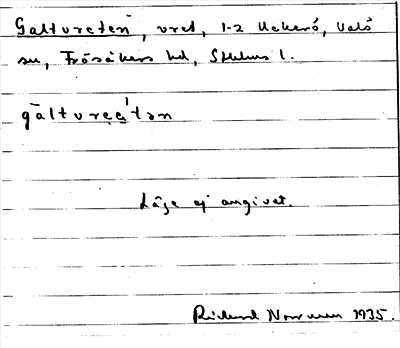 Galtvreten, vret, 1-2 Uckerö, Valö
sn, Frösåkers hd, Sthlms l.
gàltvree̜'tən
Läge ej angivet.
Richard Norrman 1935.